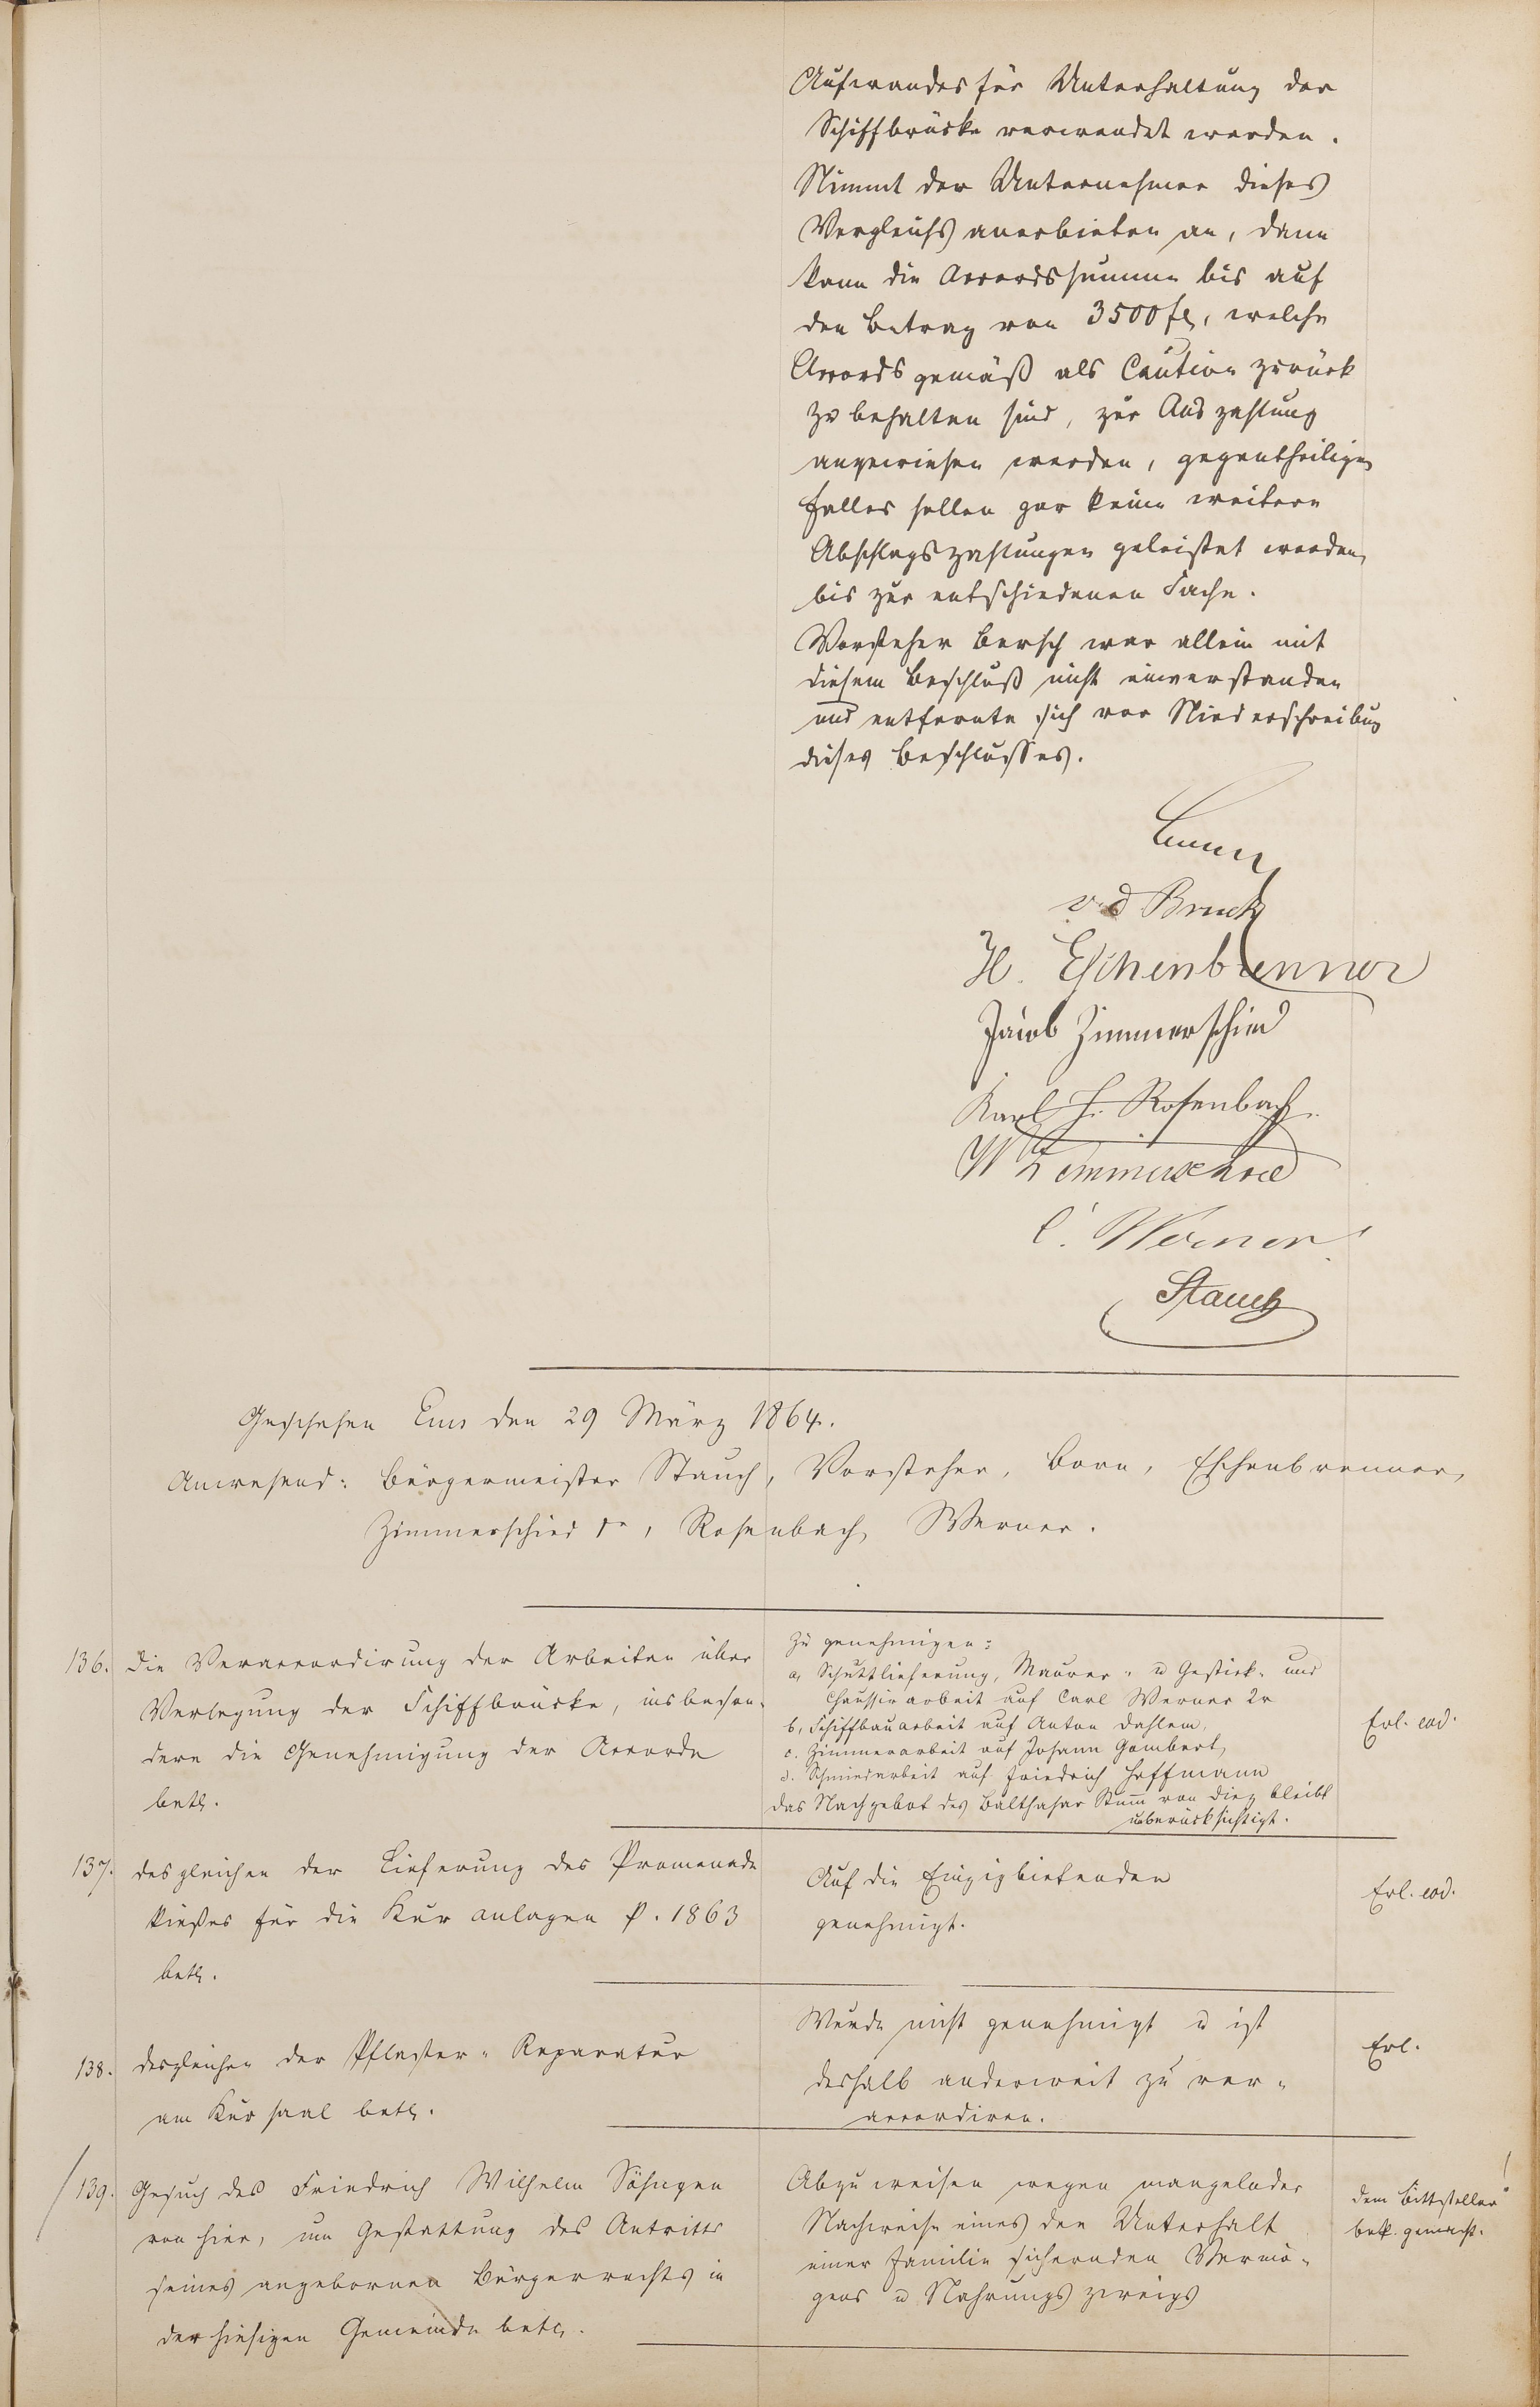 Aufwandes für Unterhaltung der
Schiffbrücke verwendet werden.
Nimmt der Unternehmer dieses
Vergleichs anerbieten an, dann
kann die Accordssumme bis auf
den Betrag von 3500 fl, welche
Accords gemäß als Caution zurück
zu behalten sind, zur Auszahlung
angewiesen werden, gegentheiligen
Falles sollen gar keine weitere
Abschlagszahlungen geleistet werden,
bis zur entschiedenen Sache.
Vorsteher Bersch war allein mit
diesem Beschluß nicht einverstanden
und entfernte sich vor Niederschreibung
dieses Beschlusses.
v. d Bruck
H. Eschenbrenner
Jacob Zimmerschied
Karl H. Rosenbach.
W Zimmerschied
C. Werner
Stauch
Geschehen Ems den 29 März 1864.
Anwesend: Bürgermeister Stauch, Vorsteher, Born, Eschenbrenner,
Zimmerschied 1r, Rosenbach, Werner.
136. Die Veraccordirung der Arbeiten über
Verlegung der Schiffbrücke, insbeson-
dere die Genehmigung der Accorde
betr.
Zu genehmigen:
a, Schuttlieferung, Maurer- u Gestick- und
Chaussirarbeit auf Carl Werner 2r
b, Schiffbauarbeit auf Anton Dahlem,
c. Zimmerarbeit auf Johann Gombert,
d. Schmiedarbeit auf Friedrich Hoffmann
das Nachgebot des Balthasar Stumm von Diez bleibt
unberücksichtigt.
Erl. eod.
137. desgleichen der Lieferung des Promenade
kieses für die Kur anlagen p. 1863
betr.
Auf die Einzigbietenden
genehmigt.
Erl. eod.
138. desgleichen der Pflaster- Reparatur
am Kursaal betr.
Wurde nicht genehmigt u ist
deshalb anderweit zu ver-
accordiren.
Erl.
139. Gesuch des Friedrich Wilhelm Söhngen
von hier, um Gestattung des Antritts
seines angebornen Bürgerrechts in
der hiesigen Gemeinde betr.
Abzuweisen wegen mangelnder
Nachweise eines den Unterhalt
einer Familie sichernden Vermö-
gens u Nahrungszweigs
dem Bittsteller
bek. gemacht.